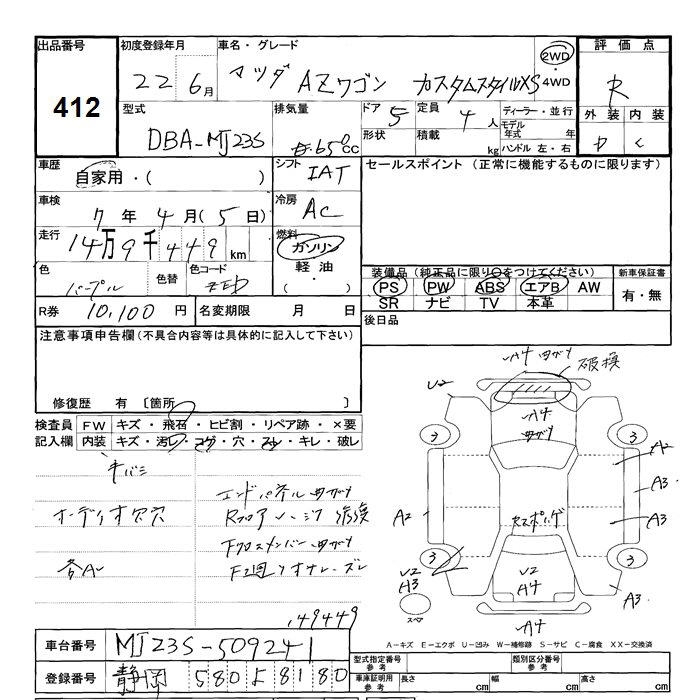 出品番号 初度登録年月 車名・グレード 評価点
412 22 6月 マツダ AZワゴン カスタムスタイルXS 2WD・4WD R
型式 排気量 ドア 5 定員 4人 ディーラー・並行 外装 内装
DBA-MJ23S 650cc 形状 積載 kg モデル年式 年 D C
ハンドル 左・右
車歴 シフト セールスポイント (正常に機能するものに限ります)
自家用・( ) IAT
車検 冷房
7年 4月(5日) AC
走行 燃料
14万9千449km ガソリン
軽油
色 色替 色コード ( ・ ) 装備品 (純正品に限り○をつけてください) 新車保証書
パープル ZED PS PW ABS エアB AW 有・無
SR ナビ TV 本革
R券 10,100円 名変期限 月 日 後日品
注意事項申告欄 (不具合内容等は具体的に記入して下さい)
修復歴 有 〔箇所 〕
検査員 FW キズ・飛石・ヒビ割・リペア跡・×要
記入欄 内装 キズ・汚レ・コゲ・穴・スレ・キレ・破レ
キバミ
エンドパネル曲がり
オーディオ欠穴 Rフロアハーシク 損傷
Fクロスメンバー曲がり
各AW
149449
A4 曲がり 破損
U2
A4
曲がり
3 3
A2
A3
A2 A3
3 3
U2
A3
U2
A4
A3
スペア
A4
A−キズ E−エクボ U−凹み W−補修跡 S−サビ C−腐食 XX−交換済
車台番号 MJ23S-509241 型式指定番号 参考 類別区分番号 参考
登録番号 静岡 580 よ 8180 車庫証明用 参考 長さ cm 幅 cm 高さ cm